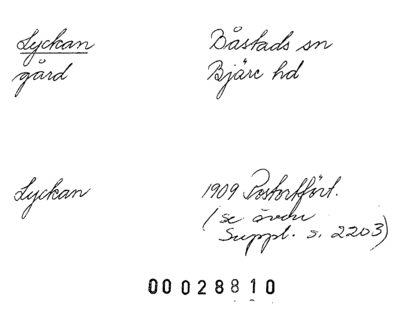 Lyckan Båstads sn
gård Bjäre hd
Lyckan 1909 Postortfört.
(se även
Suppl. s. 2203)
00028810